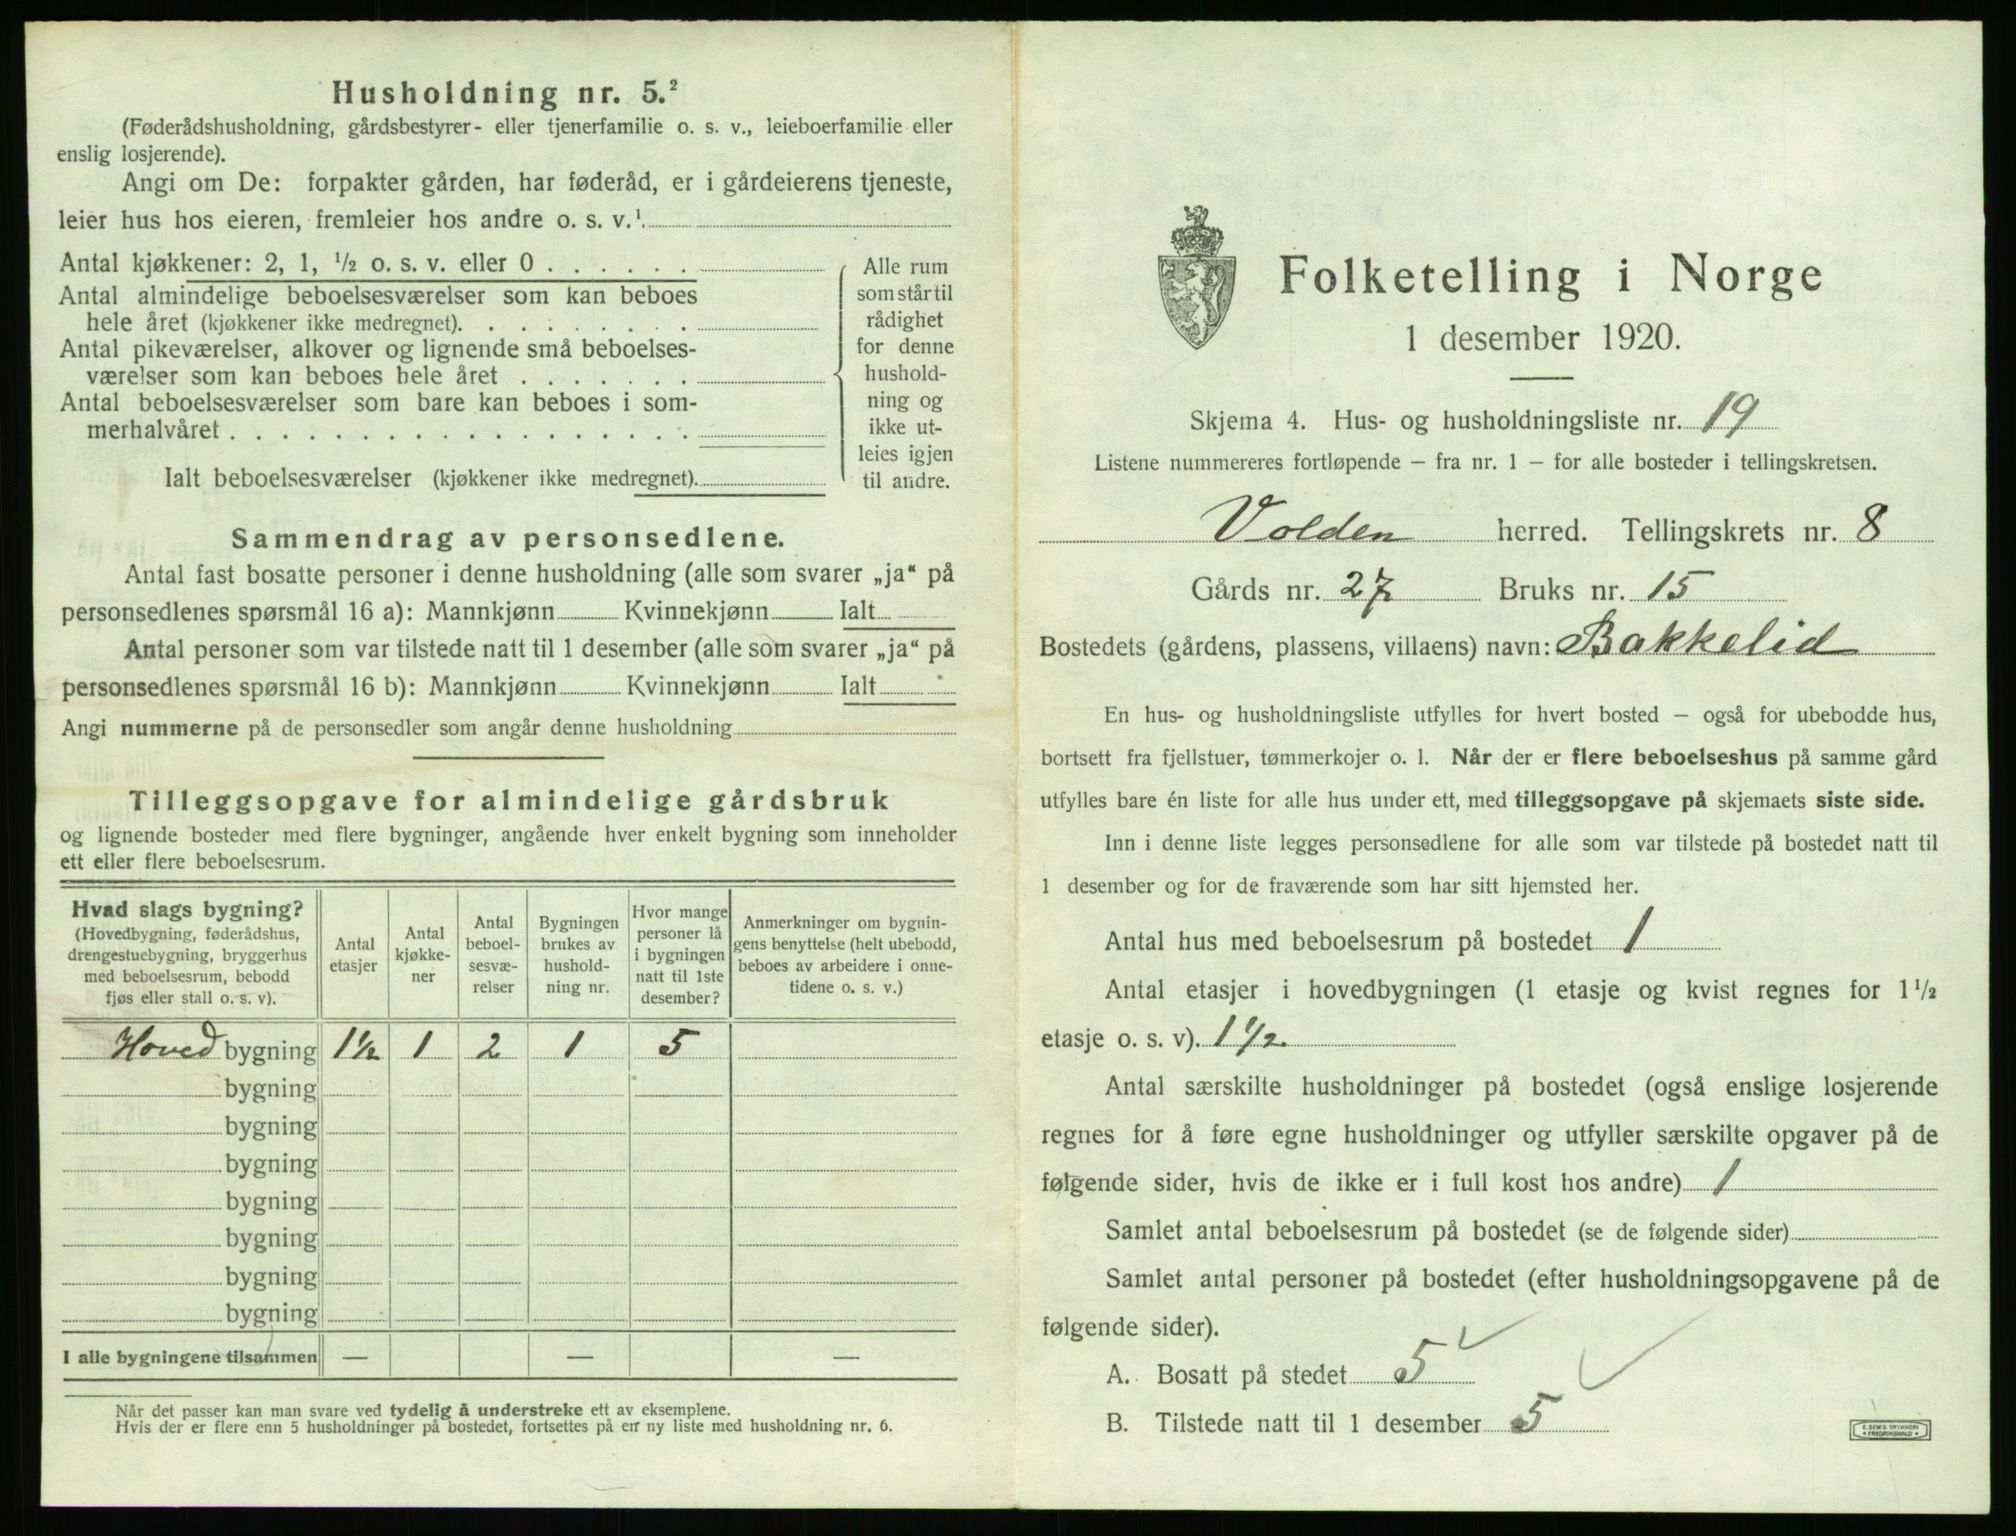 Husholdning nr. 5.²
(Føderådshusholdning, gårdsbestyrer- eller tjenerfamilie o. s. v., leieboerfamilie eller
enslig losjerende).
Angi om De: forpakter gården, har føderåd, er i gårdeierens tjeneste,
leier hus hos eieren, fremleier hos andre o. s. v.¹
Antal kjøkkener: 2, 1, ½ o. s. v. eller 0 . . . . . .
Antal almindelige beboelsesværelser som kan beboes
hele året (kjøkkener ikke medregnet). . . . . . . . .
Antal pikeværelser, alkover og lignende små beboelses-
værelser som kan beboes hele året . . . . . . .
Antal beboelsesværelser som bare kan beboes i som-
merhalvåret . . . . . . . . . . . . . . . . . .
Ialt beboelsesværelser (kjøkkener ikke medregnet).
Alle rum
som står til
rådighet
for denne
hushold-
ning og
ikke ut-
leies igjen
til andre.
Sammendrag av personsedlene.
Antal fast bosatte personer i denne husholdning (alle som svarer „ja“ på
personsedlenes spørsmål 16 a): Mannkjønn Kvinnekjønn Ialt
Antal personer som var tilstede natt til 1 desember (alle som svarer „ja“ på
personsedlenes spørsmål 16 b): Mannkjønn Kvinnekjønn Ialt
Angi nummerne på de personsedler som angår denne husholdning
Tilleggsopgave for almindelige gårdsbruk
og lignende bosteder med flere bygninger, angående hver enkelt bygning som inneholder
ett eller flere beboelsesrum.
Hvad slags bygning?
(Hovedbygning, føderådshus,
drengestuebygning, bryggerhus
med beboelsesrum, bebodd
fjøs eller stall o. s. v).
Antal
etasjer
Antal
kjøkke-
ner
Antal
beboel-
sesvæ-
relser
Bygningen
brukes av
hushold-
ning nr.
Hvor mange
personer lå
i bygningen
natt til 1ste
desember?
Anmerkninger om bygnin-
gens benyttelse (helt ubebodd,
beboes av arbeidere i onne-
tidene o. s. v.)
Hoved bygning 1½ 1 2 1 5
bygning
bygning
bygning
bygning
bygning
bygning
bygning
I alle bygningene tilsammen — — —
Når det passer kan man svare ved tydelig å understreke ett av eksemplene.
Hvis der er flere enn 5 husholdninger på bostedet, fortsettes på en ny liste med husholdning nr. 6.
Folketelling i Norge
1 desember 1920.
Skjema 4. Hus- og husholdningsliste nr. 19
Listene nummereres fortløpende — fra nr. 1 — for alle bosteder i tellingskretsen.
Volden herred. Tellingskrets nr. 8
Gårds nr. 27 Bruks nr. 15
Bostedets (gårdens, plassens, villaens) navn: Bakkelid
En hus- og husholdningsliste utfylles for hvert bosted — også for ubebodde hus,
bortsett fra fjellstuer, tømmerkojer o. l. Når der er flere beboelseshus på samme gård
utfylles bare én liste for alle hus under ett, med tilleggsopgave på skjemaets siste side.
Inn i denne liste legges personsedlene for alle som var tilstede på bostedet natt til
1 desember og for de fraværende som har sitt hjemsted her.
Antal hus med beboelsesrum på bostedet 1
Antal etasjer i hovedbygningen (1 etasje og kvist regnes for 1½
etasje o. s. v). 1½.
Antal særskilte husholdninger på bostedet (også enslige losjerende
regnes for å føre egne husholdninger og utfyller særskilte opgaver på de
følgende sider, hvis de ikke er i full kost hos andre) 1
Samlet antal beboelsesrum på bostedet (se de følgende sider)
Samlet antal personer på bostedet (efter husholdningsopgavene på de
følgende sider).
A. Bosatt på stedet 5 ✓ ✓
B. Tilstede natt til 1 desember 5
E. SEM'S TRYKKERI
• FREDRIKSHALD •